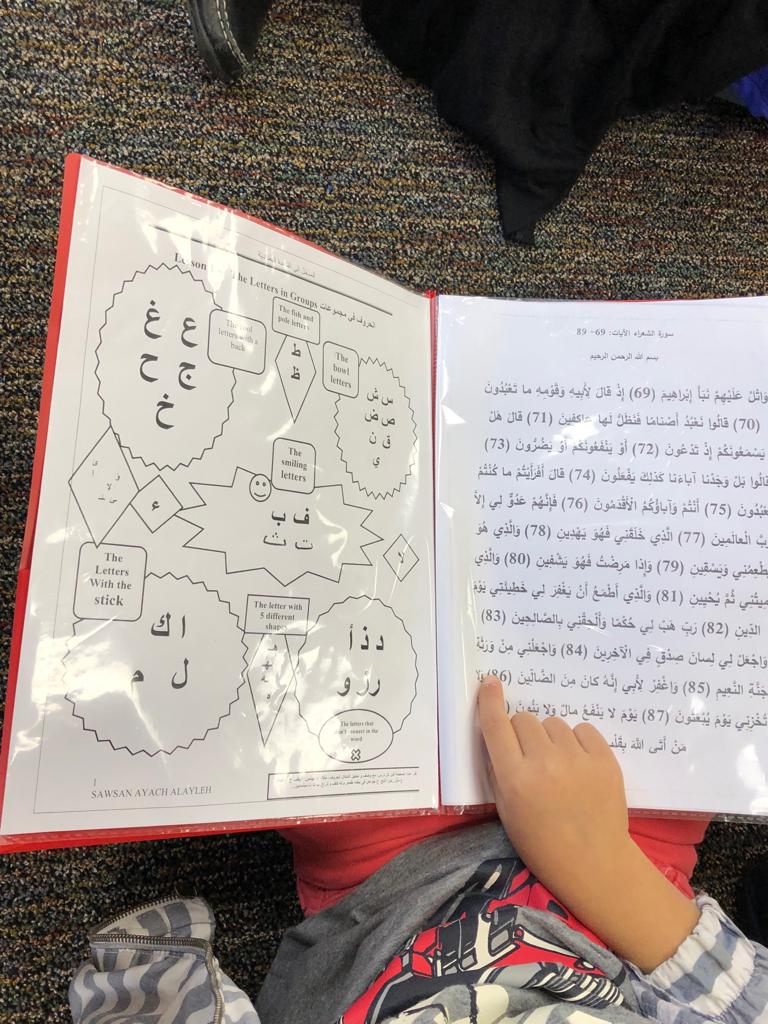 Lesson
The Letters in Groups الحروف في مجموعات
The cool
letters with a
back
The fish and
pole letters
The
bowl
letters
ع غ
ج ح
خ
ط
ظ
س ش
ص ض
ق ن
ي
The
smiling
letters
ف ب
ت ث
ء
لا
The
Letters
With the
stick
ا ك
ل م
The letter with
5 different
shapes
د ذ أ
ر ز و
The letters that
don't connect in the
word
1
SAWSAN AYACH ALAYLEH
سورة الشعراء الآيات: 69- 89
بسم الله الرحمن الرحيم
وَاتْلُ عَلَيْهِمْ نَبَأَ إِبْرَاهِيمَ (69) إِذْ قَالَ لِأَبِيهِ وَقَوْمِهِ ما تَعْبُدُونَ
(70) قالُوا نَعْبُدُ أَصْنامًا فَنَظَلُّ لَها عاكِفِينَ (71) قالَ هَلْ
يَسْمَعُونَكُمْ إِذْ تَدْعُونَ (72) أَوْ يَنْفَعُونَكُمْ أَوْ يَضُرُّونَ (73)
قالُوا بَلْ وَجَدْنا آباءَنا كَذلِكَ يَفْعَلُونَ (74) قالَ أَفَرَأَيْتُمْ ما كُنْتُمْ
تَعْبُدُونَ (75) أَنْتُمْ وَآباؤُكُمُ الْأَقْدَمُونَ (76) فَإِنَّهُمْ عَدُوٌّ لِي إِلاَّ
رَبَّ الْعالَمِينَ (77) الَّذِي خَلَقَنِي فَهُوَ يَهْدِينِ (78) وَالَّذِي هُوَ
يُطْعِمُنِي وَيَسْقِينِ (79) وَإِذا مَرِضْتُ فَهُوَ يَشْفِينِ (80) وَالَّذِي
يُمِيتُنِي ثُمَّ يُحْيِينِ (81) وَالَّذِي أَطْمَعُ أَنْ يَغْفِرَ لِي خَطِيئَتِي يَوْمَ
الدِّينِ (82) رَبِّ هَبْ لِي حُكْمًا وَأَلْحِقْنِي بِالصَّالِحِينَ (83)
وَاجْعَلْ لِي لِسانَ صِدْقٍ فِي الْآخِرِينَ (84) وَاجْعَلْنِي مِنْ وَرَثَةِ
جَنَّةِ النَّعِيمِ (85) وَاغْفِرْ لِأَبِي إِنَّهُ كانَ مِنَ الضَّالِّينَ (86) وَلا
تُخْزِنِي يَوْمَ يُبْعَثُونَ (87) يَوْمَ لا يَنْفَعُ مالٌ وَلا بَنُونَ
مَنْ أَتَى اللهَ بِقَلْبٍ